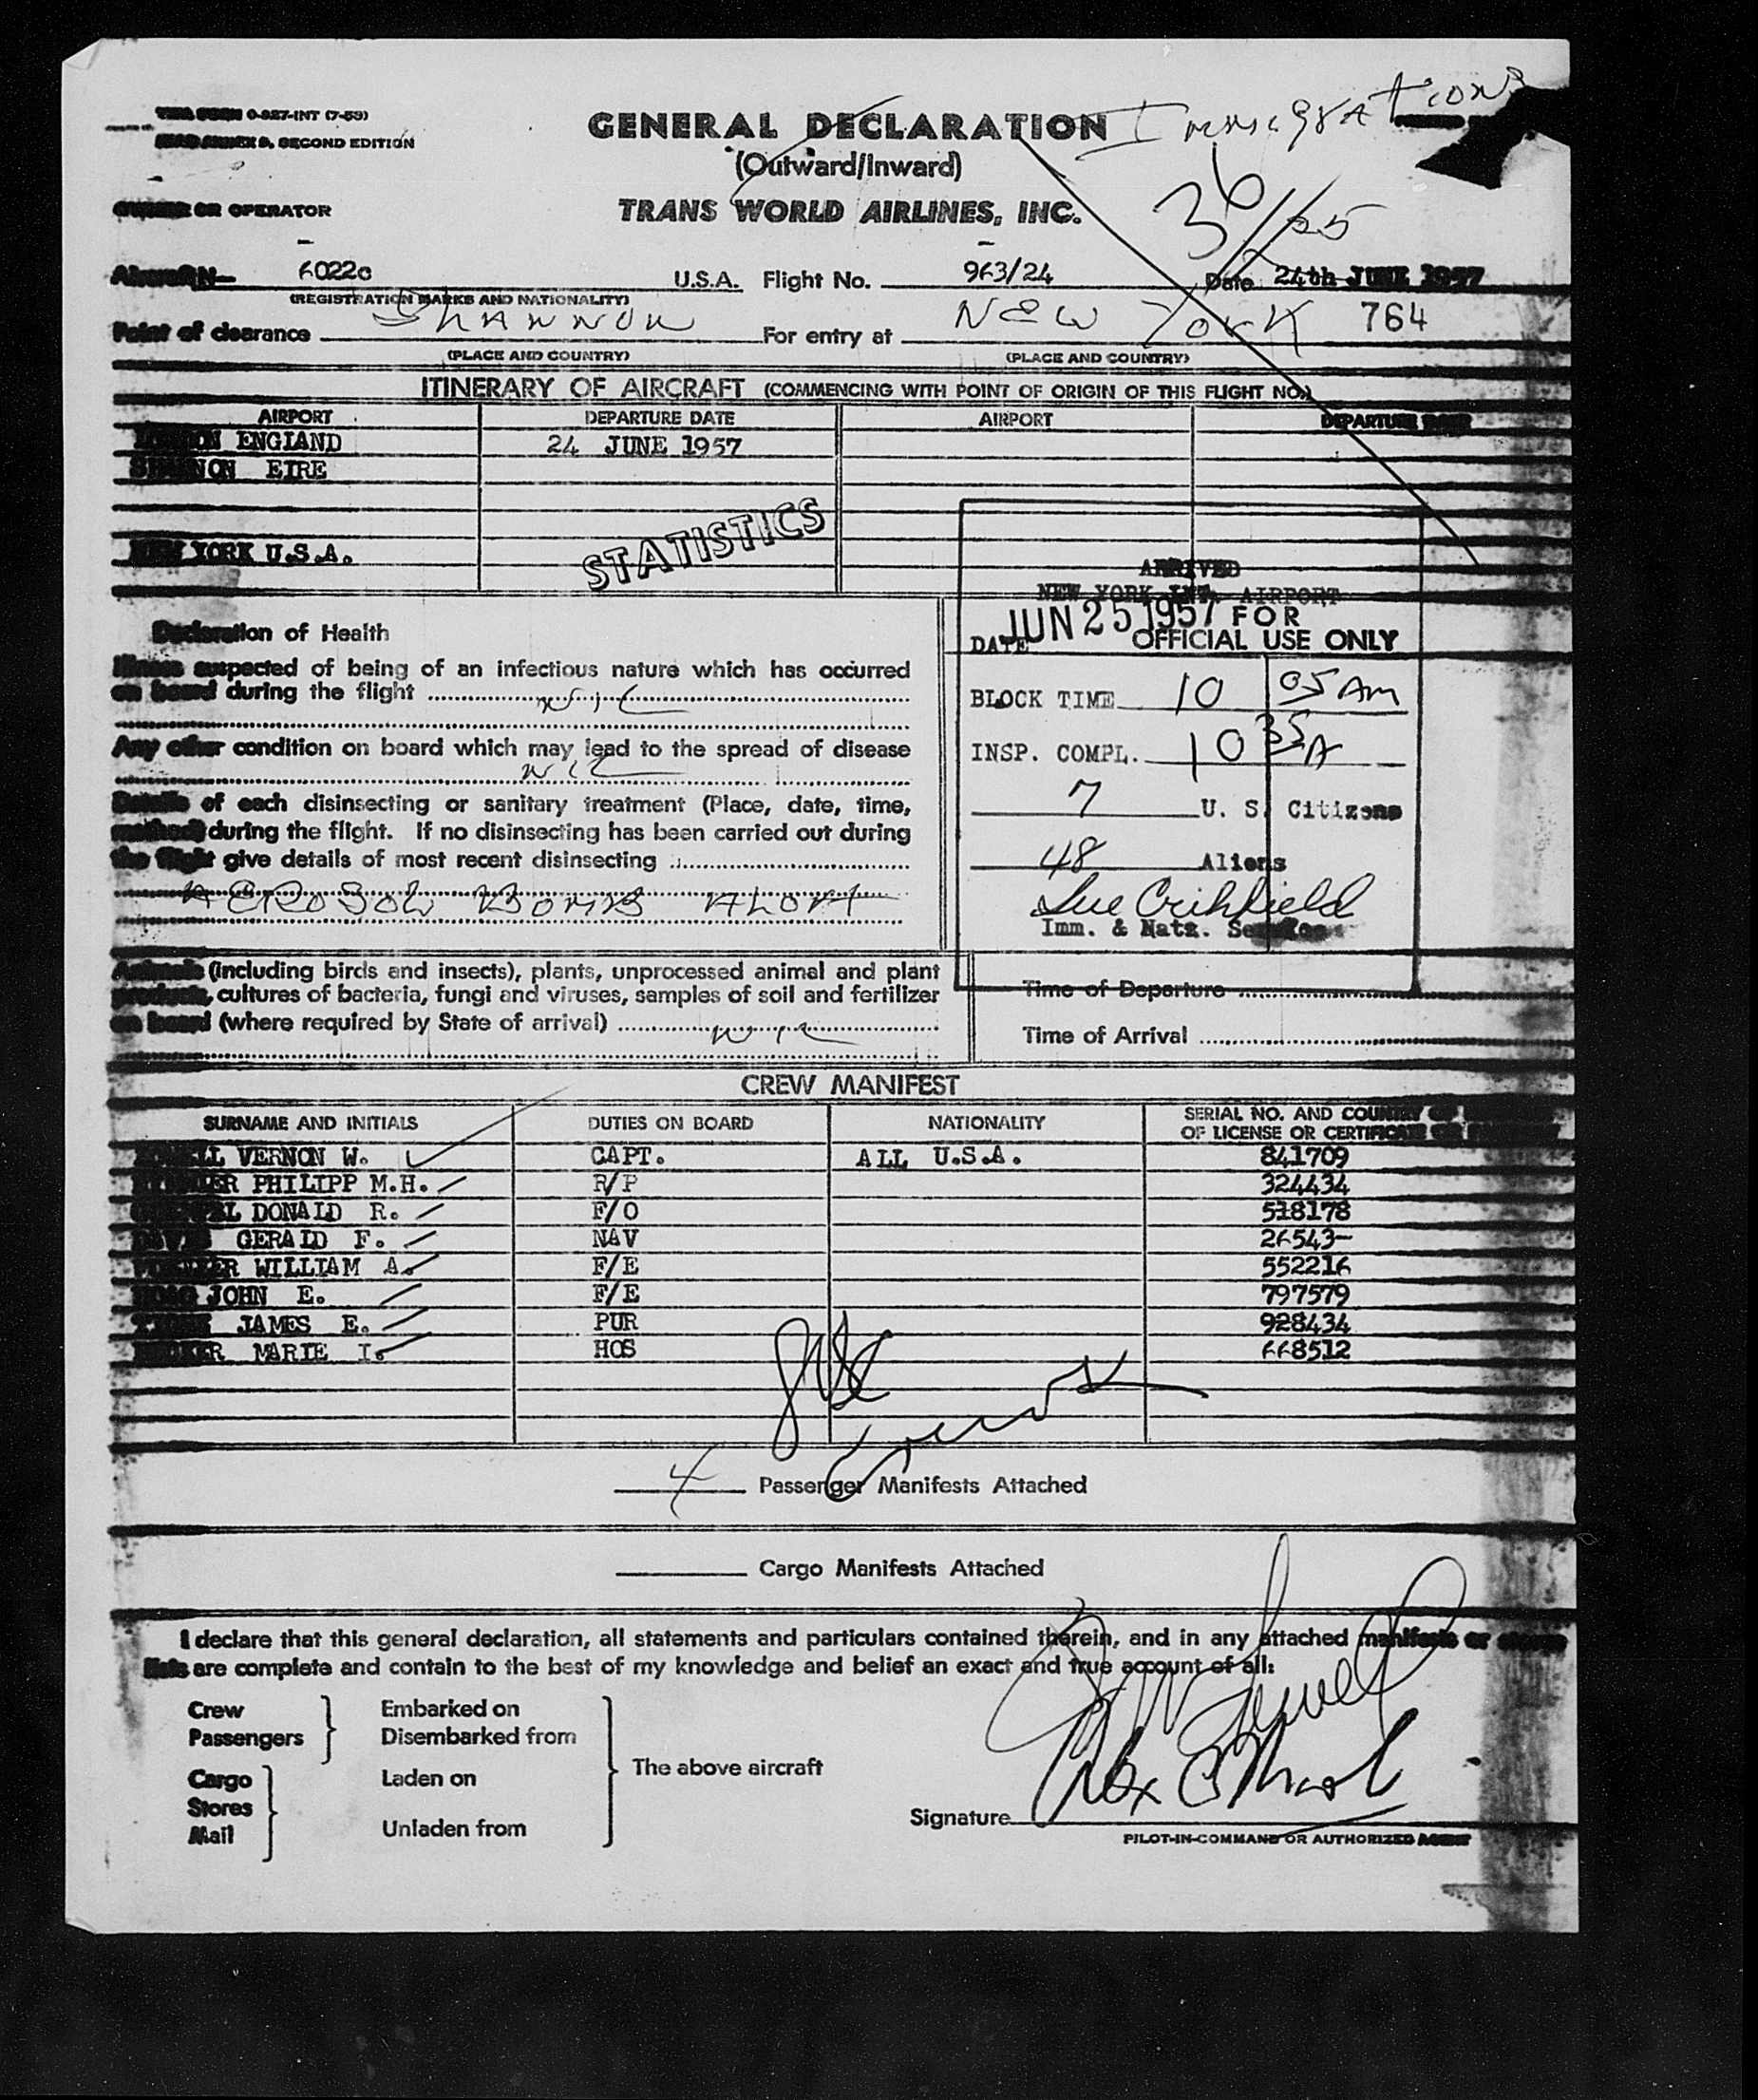 0-927-INT (7-53)
SECOND EDITION
GENERAL DECLARATION
Immigration
(Outward/Inward)
36/55
OR OPERATOR
TRANS WORLD AIRLINES, INC.
6022c U.S.A. Flight No. 963/24 Date 24th JUNE 1957
(REGISTRATION MARKS AND NATIONALITY)
Point of clearance SHANNON For entry at NEW YORK 764
(PLACE AND COUNTRY) (PLACE AND COUNTRY)
ITINERARY OF AIRCRAFT (COMMENCING WITH POINT OF ORIGIN OF THIS FLIGHT NO.)
AIRPORT DEPARTURE DATE AIRPORT DEPARTURE DATE
LONDON ENGLAND 24 JUNE 1957
SHANNON EIRE
STATISTICS
NEW YORK U.S.A.
ARRIVED
NEW YORK INT. AIRPORT
DATE JUN 25 1957 FOR
OFFICIAL USE ONLY
BLOCK TIME 10 05 AM
INSP. COMPL. 10 35 A
7 U. S. Citizens
48 Aliens
Imm. & Natz. Service
Declaration of Health
Illness suspected of being of an infectious nature which has occurred
on board during the flight NIL
Any other condition on board which may lead to the spread of disease
NIL
Details of each disinsecting or sanitary treatment (Place, date, time,
method) during the flight. If no disinsecting has been carried out during
the flight give details of most recent disinsecting
AEROSOL BOMB ALOFT
Animals (including birds and insects), plants, unprocessed animal and plant
products, cultures of bacteria, fungi and viruses, samples of soil and fertilizer
on board (where required by State of arrival) NIL
Time of Departure
Time of Arrival
CREW MANIFEST
SURNAME AND INITIALS DUTIES ON BOARD NATIONALITY SERIAL NO. AND COUNTRY OF
OF LICENSE OR CERTIFICATE
VERNON W. CAPT. ALL U.S.A. 841709
PHILIPP M.H. R/P 324434
DONALD R. F/O 518178
GERALD F. NAV 26543-
WILLIAM A. F/E 552216
JOHN E. F/E 797579
JAMES E. PUR 928434
MARIE I. HOS 668512
4 Passenger Manifests Attached
Cargo Manifests Attached
I declare that this general declaration, all statements and particulars contained therein, and in any attached manifests or stores
lists are complete and contain to the best of my knowledge and belief an exact and true account of all:
Crew Embarked on
Passengers Disembarked from
The above aircraft
Cargo Laden on
Stores
Mail Unladen from
Signature
PILOT-IN-COMMAND OR AUTHORIZED AGENT